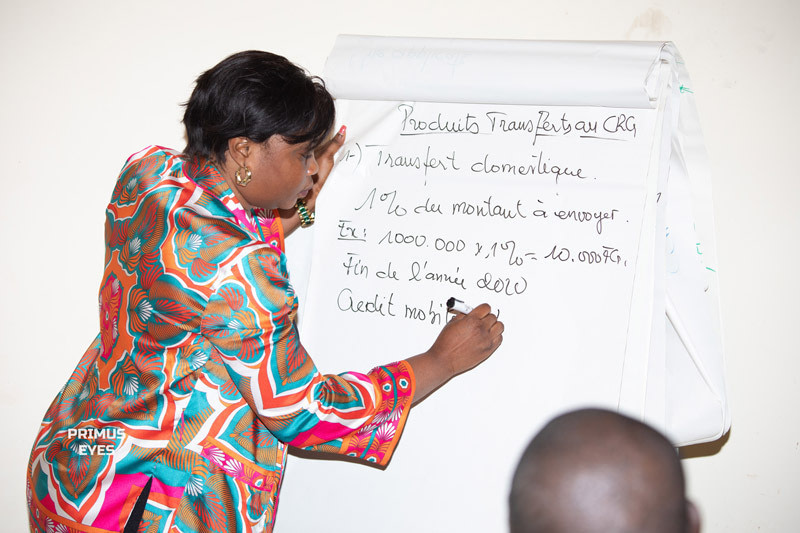 Produits Transferts au CRG
1-) Transfert domestique.
1% du montant à envoyer.
Ex: 1000.000 x 1% = 10.000 FG.
Fin de l'année 2020
Credit
PRIMUS
EYES